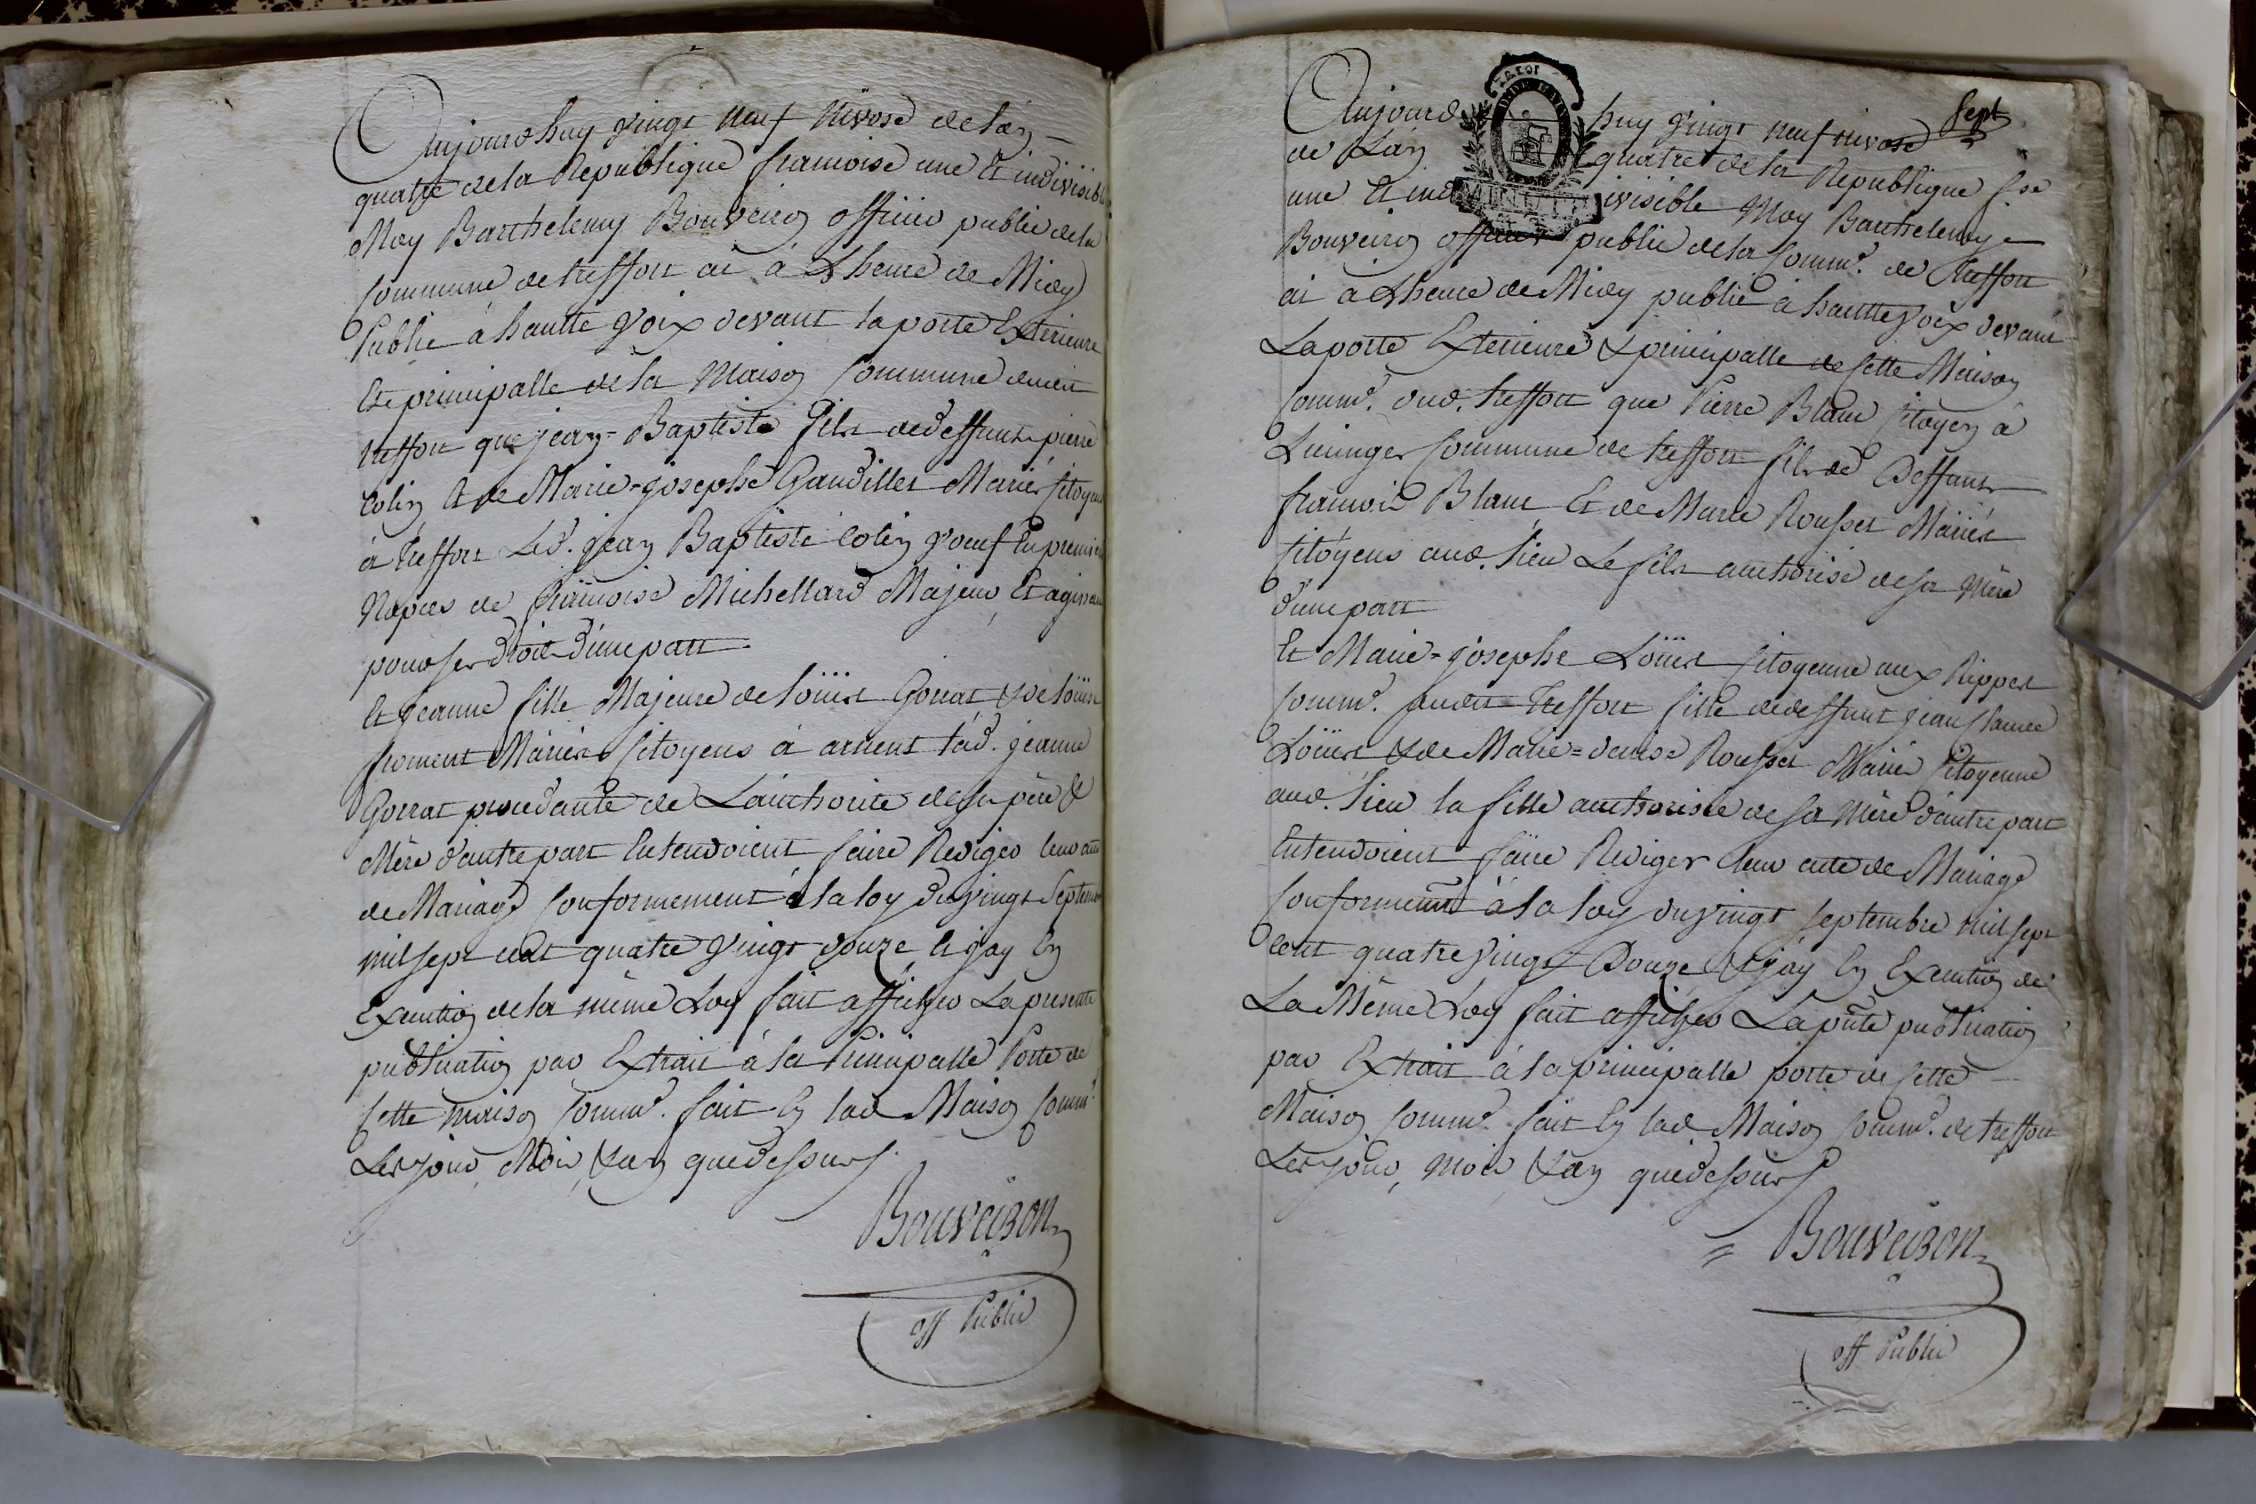 Aujourdhuy vingt neuf Nivose de L'an
quatre de la Republique francoise une Et indivisible
Moy Barthelemy Bouveiron officier public de la
Commune de treffort ai à L'heure de Midy
Publié à hautte voix devant la porte Exterieure
Et principalle de la Maison Commune dudit
treffort que jean=Baptiste fils de deffunt pierre
Colin et de Marie=josephe Gaudillet Mariés Citoyens
à treffort Led. jean Baptiste Colin veuf En premieres
Nopces de francoise Michellard Majeur, Et agissant
pour ses droits d'une part
Et jeanne fille Majeure de Loüis Gorrat & de Loüise
froment Mariés Citoyens à arnent lad. jeanne
Gorrat procedante de L'authorité de ses père &
Mère d'autre part Entendoient faire Rediger leur acte
de Mariage Conformement à la loy du vingt Septembre
mil sept cent quatre vingt douze Et j'ay En
Execution de la même Loy fait afficher La presente
publication par Extrait à la Principalle Porte de
Cette maison Comm.e fait En lad Maison Comm.e
Les jour, Mois, & an que dessus
Bouveiron
off Public
Sept
Aujourd huy vingt neuf nivose
de L'an quatre de la Republique f.se
une Et ind ivisible Moy Barthelemy
Bouveiron officier public de la Comm.e de Treffort
ai à L'heure de Midy publié à hautte voix devant
La porte Exterieure & principalle de Cette Maison
Comm.e dud. treffort que Pierre Blanc Citoyen à
Lucinges Commune de treffort fils de Deffunt
francois Blanc Et de Marie Rousset Mariés
Citoyens aud. Lieu Le fils authorisé de sa Mère
d'une part
Et Marie=josephe Loüis Citoyenne aux Rippes
Comm.e dudit Treffort fille de deffunt jean Claude
Loüis & de Marie=denise Rousset Mariés Citoyenne
aud. Lieu la fille authorisée de sa Mère d'autre part
Entendoient faire Rediger leur acte de Mariage
Conformement à la loy du vingt septembre mil sept
cent quatre vingt Douze & j'ay En Execution de
La Même Loy fait afficher La pnte publication
par Extrait à la principalle porte de Cette
Maison Comm.e fait En lad. Maison Comm.e de treffort
Les jour, mois & an que dessus
Bouveiron
off Public